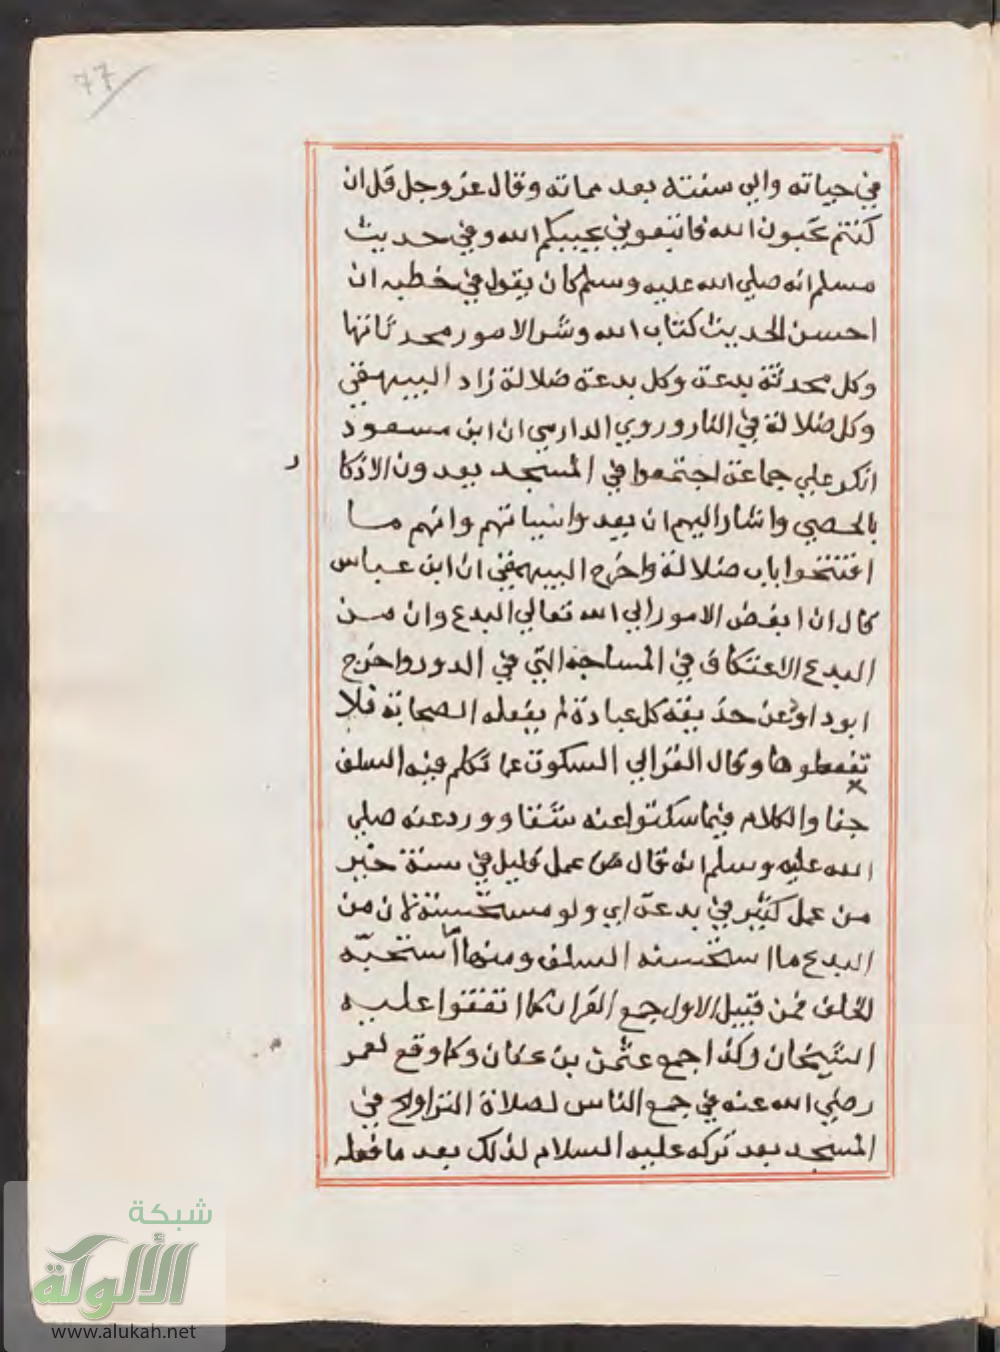 77
في حياته والي سنته بعد مماته وقال عز وجل قل ان
كنتم تحبون الله فاتبعوني يحببكم الله وفي حديث
مسلم انه صلي الله عليه وسلم كان يقول في خطبه ان
احسن الحديث كتاب الله وشر الامور محدثاتها
وكل محدثة بدعة وكل بدعة ضلالة زاد البيهقي
وكل ضلالة في النار وروي الدارمي ان ابن مسعود
انكر علي جماعة اجتمعوا في المسجد يعدون الاذكا
ر
بالحصي واشار اليهم ان يعدوا سياتهم وانهم ما
افتتحوا باب ضلالة واخرج البيهقي ان ابن عباس
قال ان ابغض الامور الي الله تعالي البدع وان من
البدع الاعتكاف في المساجد التي في الدور واخرج
ابو داود عن حذيفة كل عبادة لم يفعله الصحابة فلا
تفعلوها وقال الغزالي السكوت عما تكلم فيه السلف
جفا والكلام فيما سكتوا عنه وورد عنه صلي
الله عليه وسلم انه قال عمل قليل في سنة خير
من عمل كثير في بدعة اي ولو مستحسنة لان من
البدع ما استحسنه السلف ومنها ما استحبه
الخلف فمن قبيل الاول جمع القران كما اتفقوا عليه
الشيخان وكذا جمع عثمن بن عفان وكما وقع لعمر
رضي الله عنه في جمع الناس لصلاة التراويح في
المسجد بعد تركه عليه السلام لذلك بعد ما فعله
شبكة
الألوكة
www.alukah.net